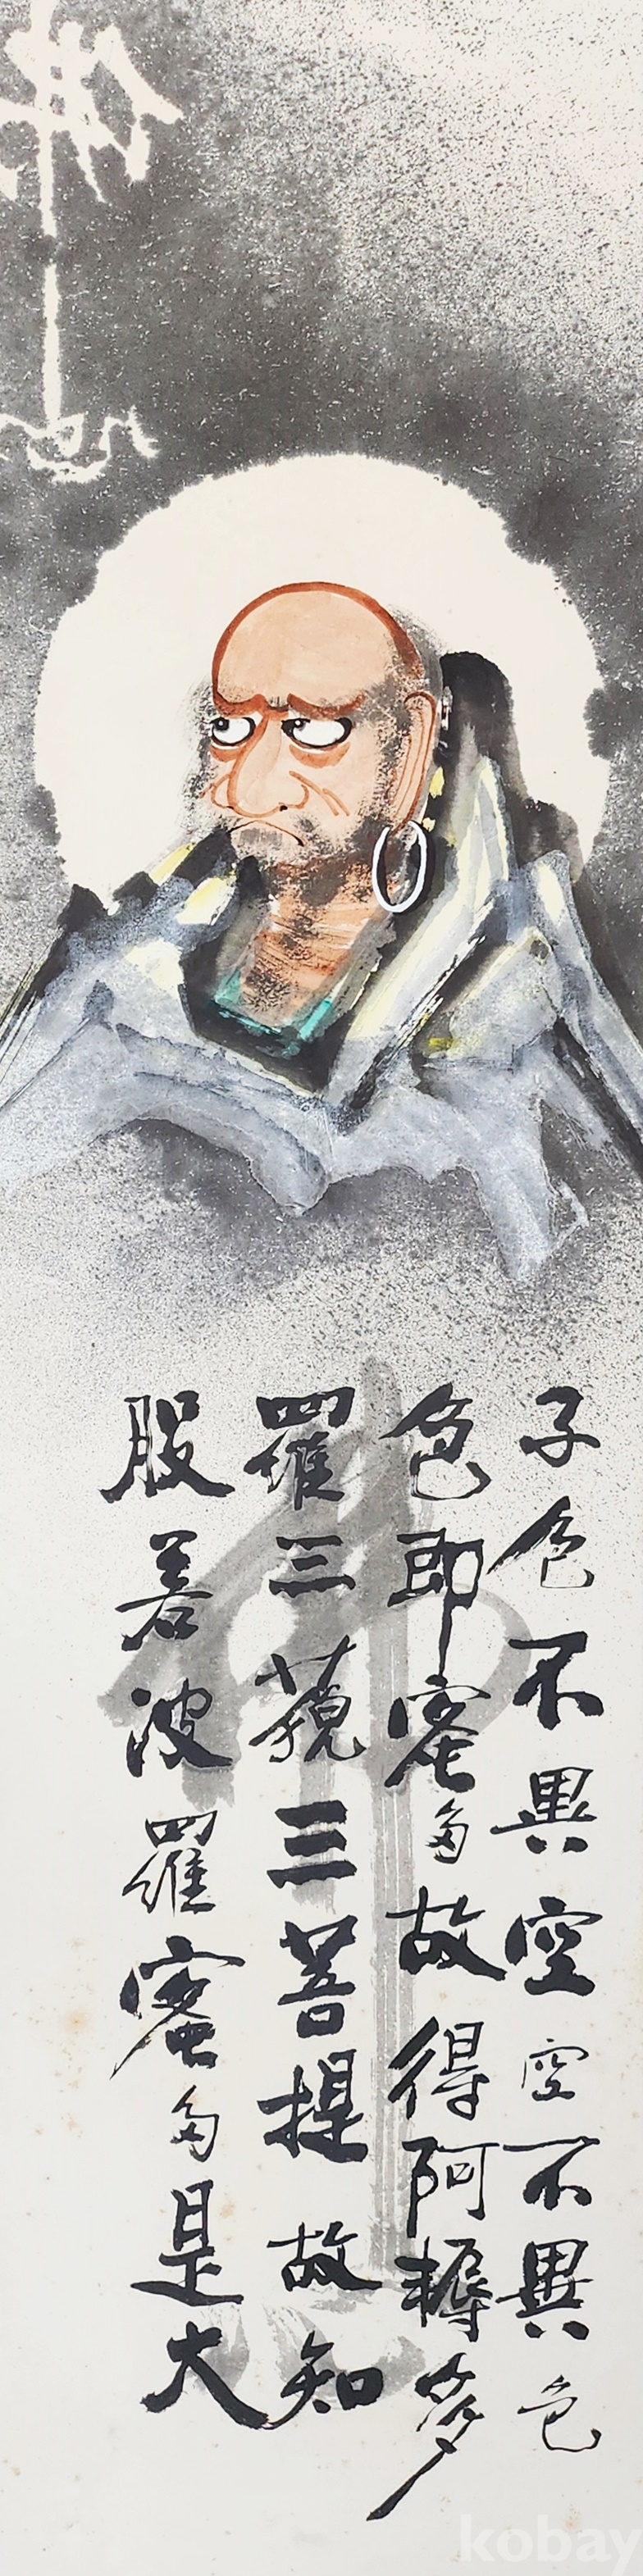 子色不異空空不異色
色即蜜多故得阿耨多
羅三藐三菩提故知
般若波羅蜜多是大
kobay